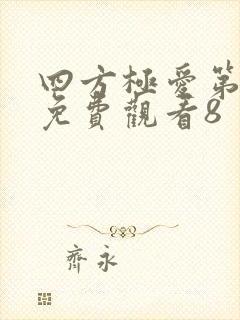 四方極愛第
免費觀看8
齊永